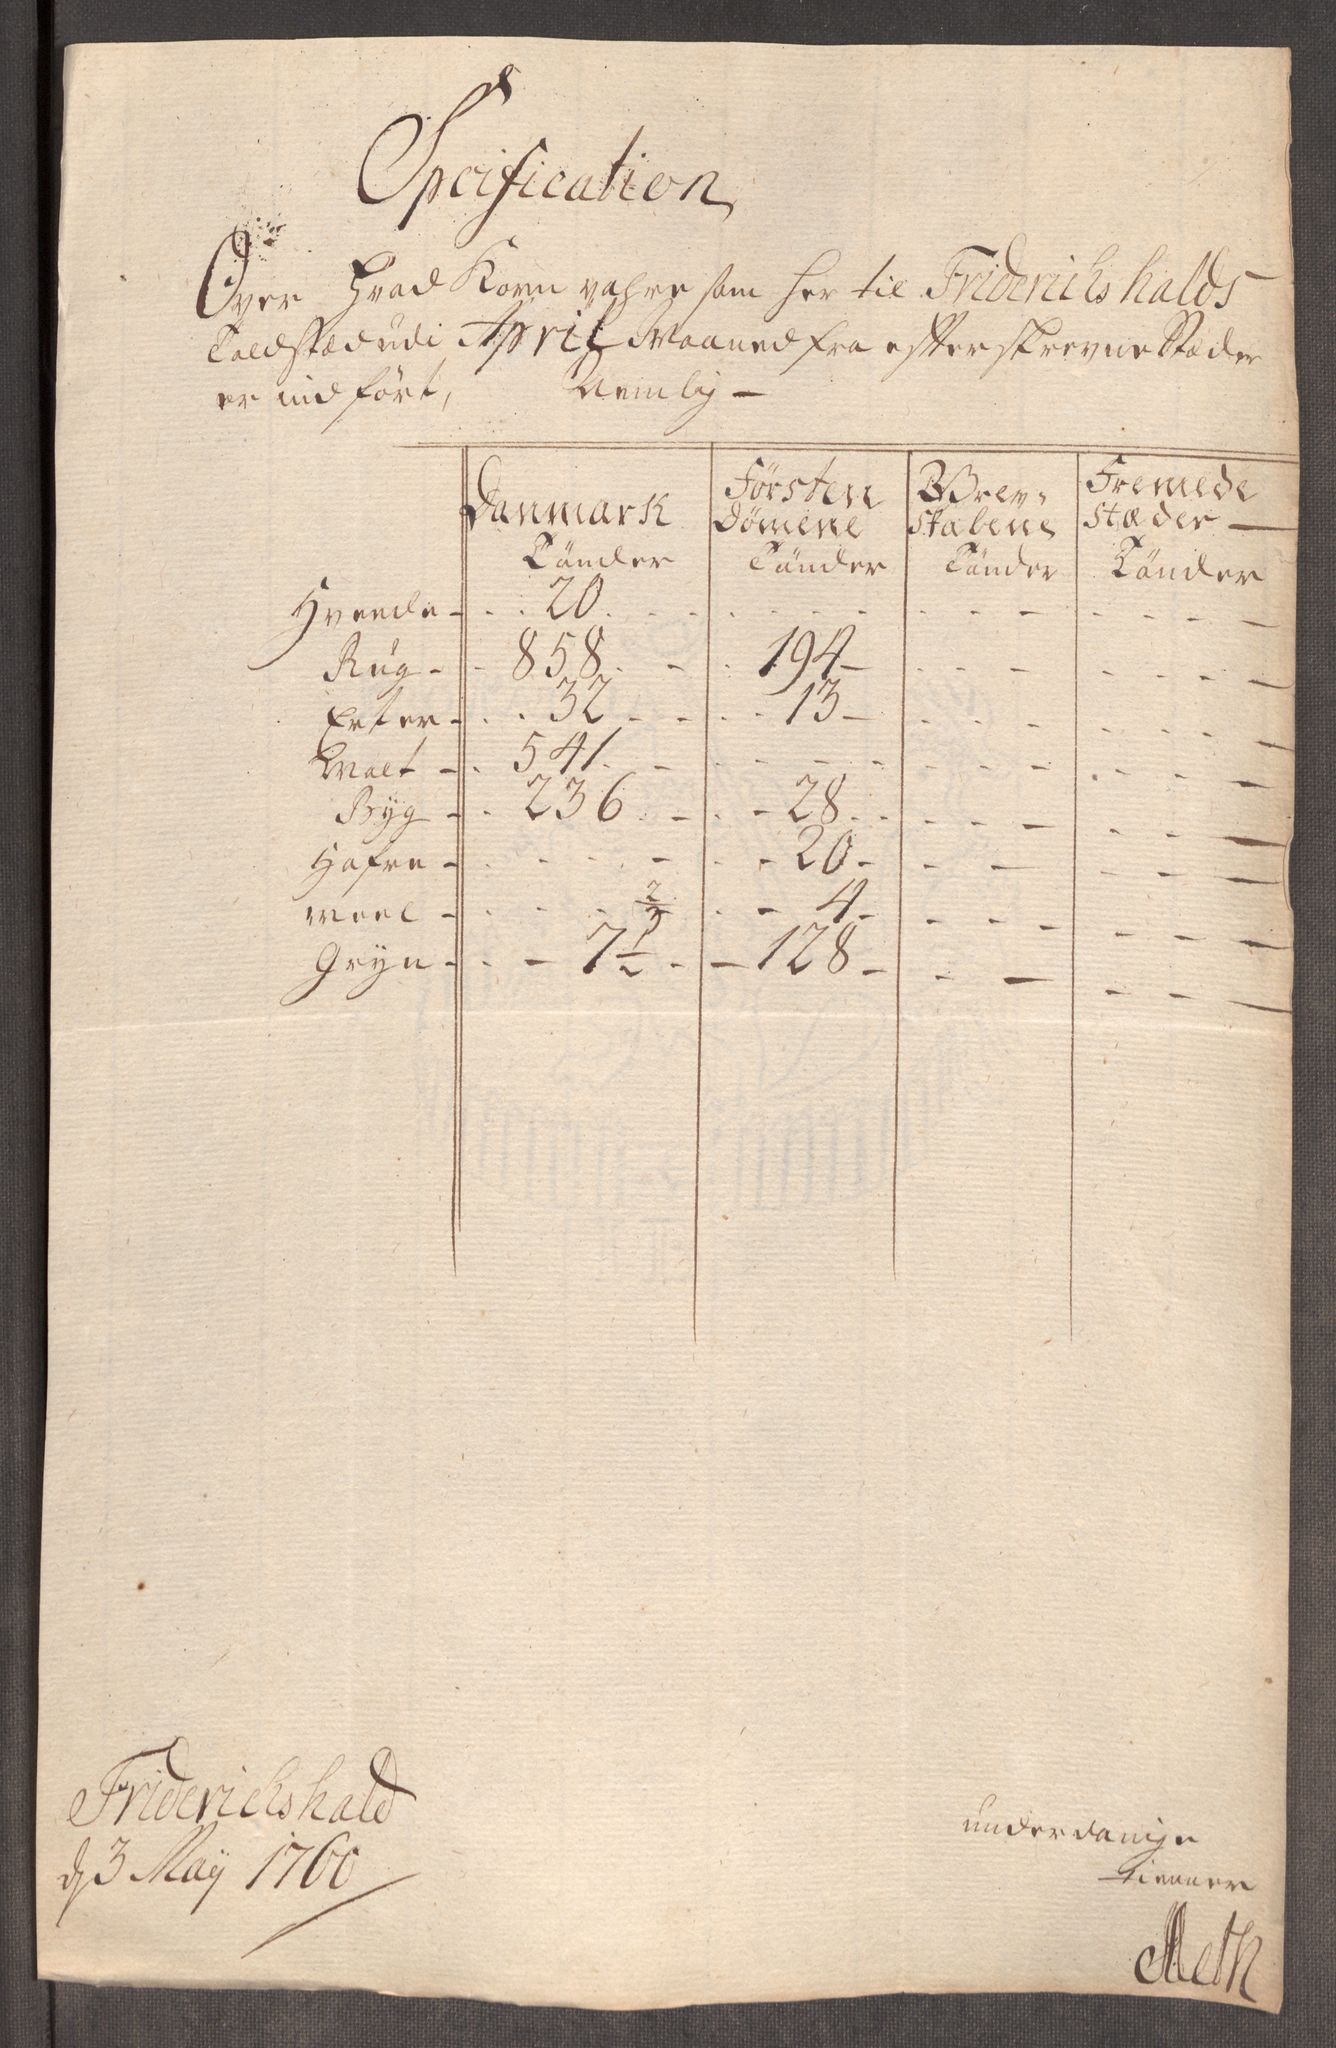 Specification
Over Hvad Korn vahre som her til Friderichshalds
Toldstæd udi April Maaned fra efterskrevne Stæder
er indført, Nemlig -
Danmark Tönder | Försten dömene Tönder | Grev- skabene Tönder | Fremede stæder - Tönder
Hveede - 20
Rúg - 858 194
Erter - 32 13
Malt - 541
Byg - 236 28
Hafre - 20
Meel - 2/3 4
Gryn - 7 1/2 128
Friderichshald
d 3 Maÿ 1760
underdanige
tienner